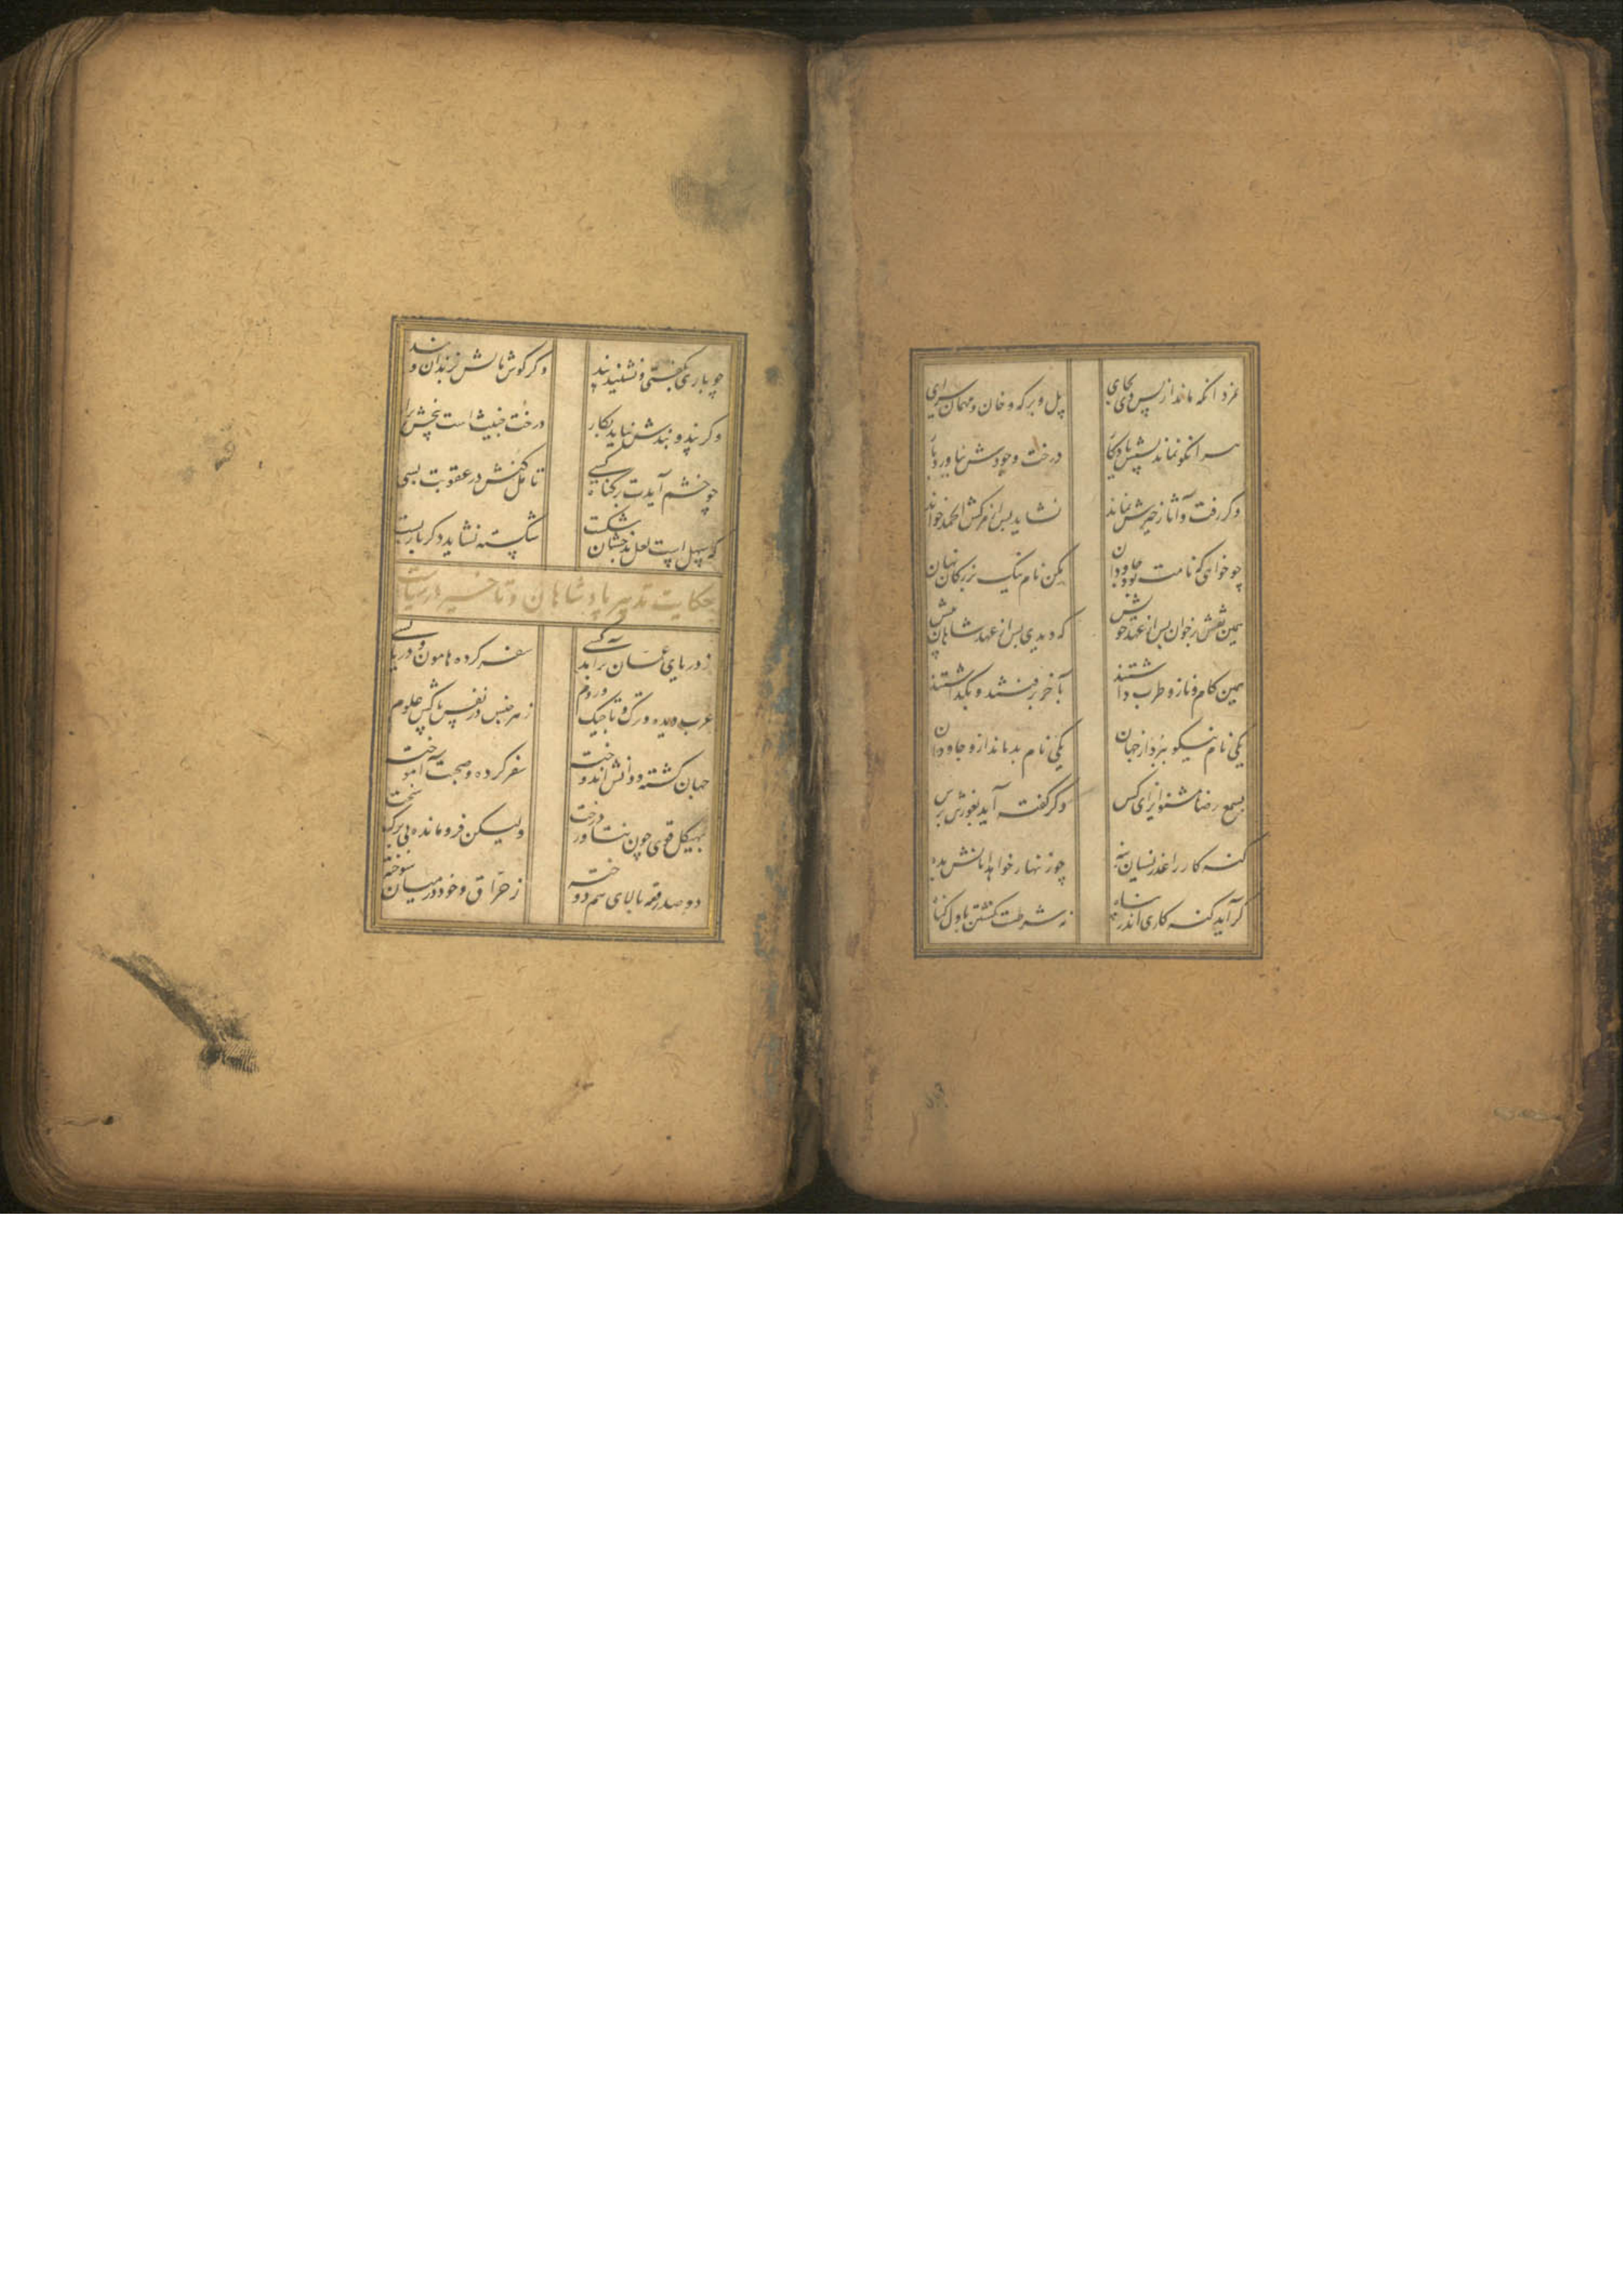 نمرد آنکه ماند از پس وی بجای پل و برکه و خان و مهمان سرای
هر آنکو نماند پسش یادگار درخت وجودش نیاورد بار
وگر رفت و آثار خیرش نماند نشاید پس از مرگش الحمد خواند
چو خواهی که نامت بود جاودان مکن نام نیک بزرگان نهان
همین نقش برخوان پس از عهد خویش که دیدی پس از عهد شاهان پیش
همین کام و ناز و طرب داشتند بآخر برفتند و بگذاشتند
یکی نام نیکو ببرد از جهان یکی نام بد ماند ازو جاودان
بسمع رضا مشنو ایذای کس وگر گفته آید بغورش برس
گنه کار را عذر نسیان بنه چو زنهار خواهد امانش بده
گر آید گنه کاری اندر پناه نه شرطست کشتن باول گناه
چو باری بگفتی و نشنید پند وگر گوش مالش بزندان و بند
وگر پند و بندش نیاید بکار درخت خبیث است بیخش برار
چو خشم آیدت بر گناه کسی تامل کنش در عقوبت بسی
که سهل است لعل بدخشان شکست شکسته نشاید دگر بار بست
حکایت تدبیر پادشاهان و تاخیر در سیاست
ز دریای عمان برآمد کسی سفر کرده هامون و دریا بسی
عرب دیده و ترک و تاجیک و روم ز هر جنس در نفس پاکش علوم
جهان گشته و دانش اندوخته سفر کرده و صحبت آموخته
بهیکل قوی چون تناور درخت ولیکن فرومانده بی برگ سخت
دو صد رقعه بالای هم دوخته ز حراق و خود در میان سوخته